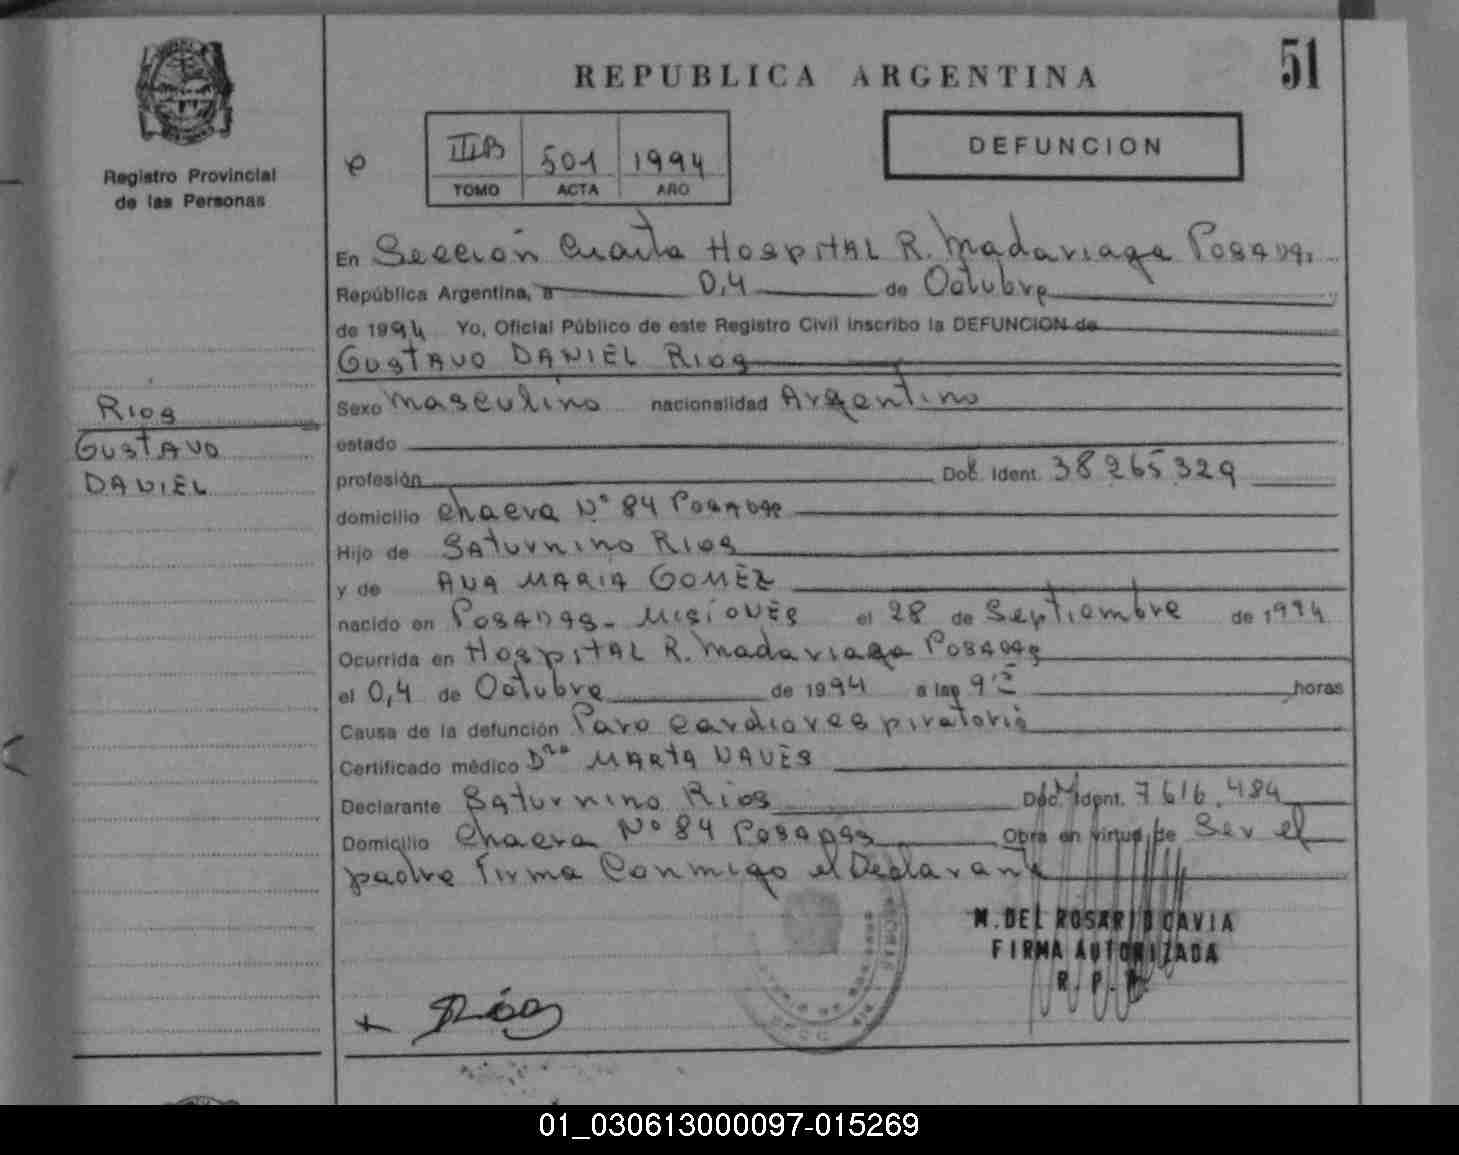 51
REPUBLICA ARGENTINA
Registro Provincial
de las Personas
IIIB 501 1994
TOMO ACTA AÑO
DEFUNCION
En Sección Cuarta Hospital R. Madariaga Posadas
República Argentina, a 0,4 de Octubre
de 1994 Yo, Oficial Público de este Registro Civil inscribo la DEFUNCION de
GUSTAVO DANIEL Rios
Rios
GUSTAVO
DANIEL
Sexo Masculino nacionalidad Argentino
estado
profesión Doc. Ident. 38265329
domicilio Chacra N° 84 Posadas
Hijo de Saturnino Rios
y de ANA MARIA GOMEZ
nacido en Posadas - Misiones el 28 de Septiembre de 1994
Ocurrida en Hospital R. Madariaga Posadas
el 0,4 de Octubre de 1994 a las horas
Causa de la defunción Paro cardiorespiratorio
Certificado médico Dra MARTA
Declarante Saturnino Rios Doc. Ident. 7616.484
Domicilio Chacra N° 84 Posadas Obra en virtud de Ser el
padre Firma Conmigo el Declarante
M. DEL ROSARIO CAVIA
FIRMA AUTORIZADA
R. P. P.
Rios
01_030613000097-015269